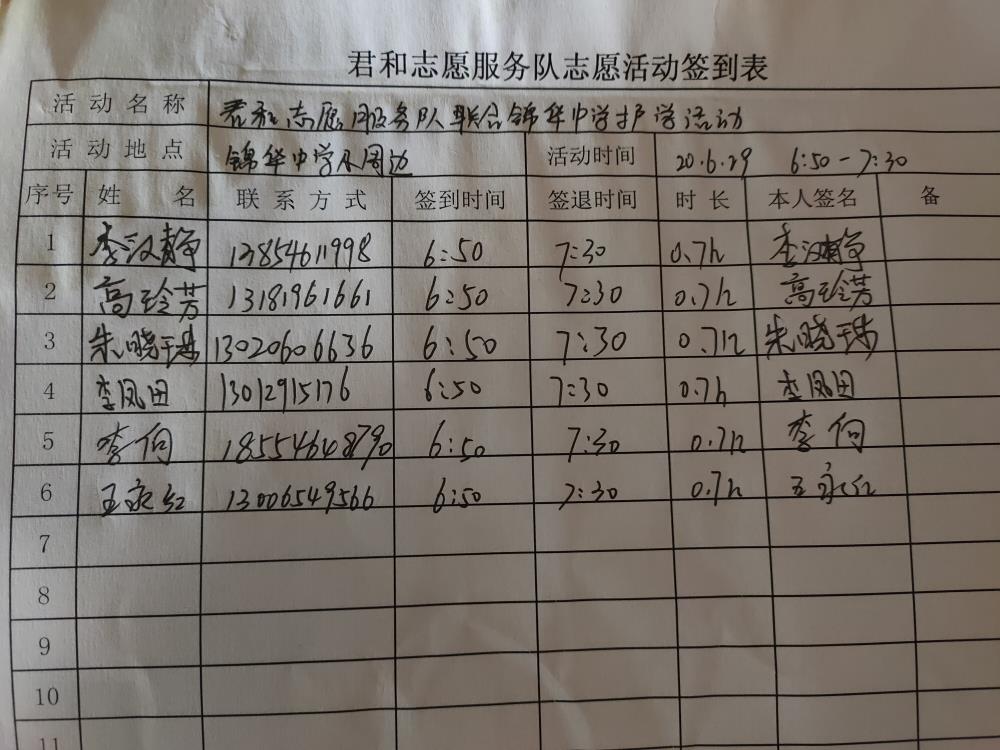 君和志愿服务队志愿活动签到表
活动名称 君和志愿服务队联合锦华中学护学活动
活动地点 锦华中学及周边 活动时间 20.6.29 6:50-7:30
序号 姓名 联系方式 签到时间 签退时间 时长 本人签名 备
1 李汉静 13854611998 6:50 7:30 0.7h 李汉静
2 高玲芳 13181961661 6:50 7:30 0.7h 高玲芳
3 朱晓琳 13020606636 6:50 7:30 0.7h 朱晓琳
4 李凤田 13012915176 6:50 7:30 0.7h 李凤田
5 李向 18554648790 6:50 7:30 0.7h 李向
6 王永红 13006549566 6:50 7:30 0.7h 王永红
7
8
9
10
11